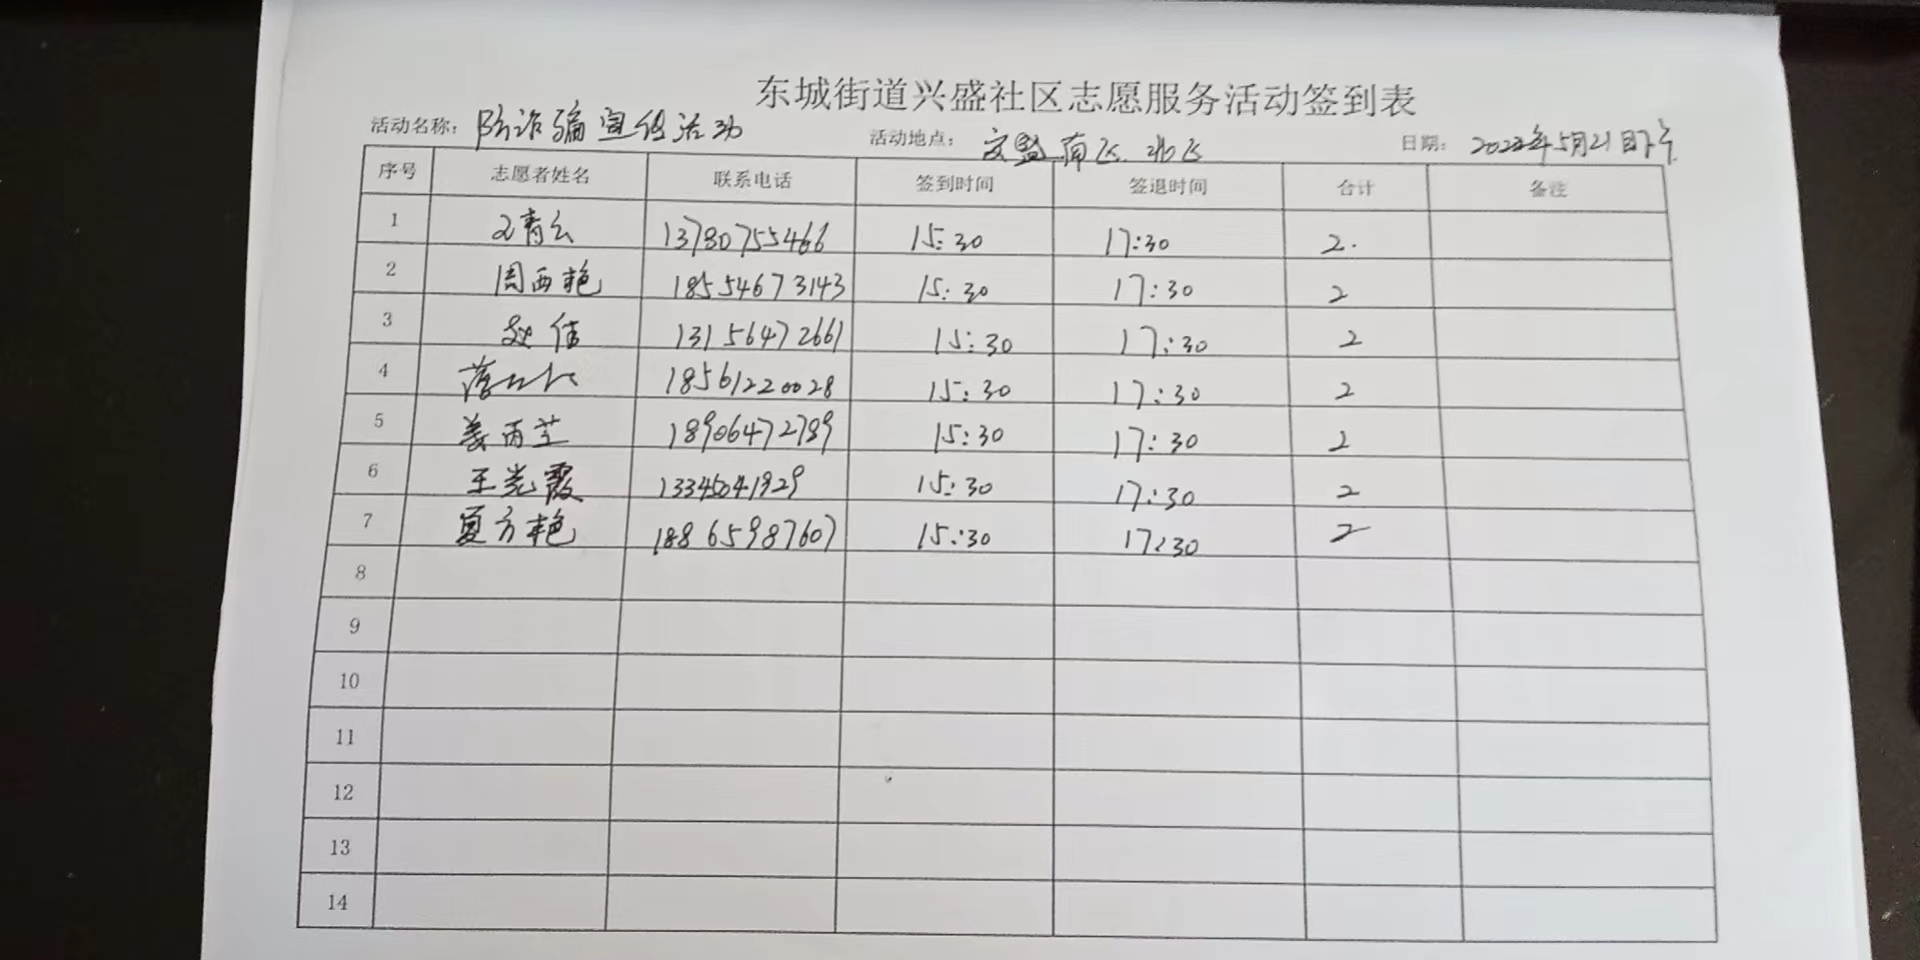 东城街道兴盛社区志愿服务活动签到表
活动名称: 防诈骗宣传活动 活动地点: 南区. 北区 日期: 2022年5月21日下午
序号 志愿者姓名 联系电话 签到时间 签退时间 合计 备注
1 13780755466 15:30 17:30 2.
2 周西艳 18554673143 15:30 17:30 2
3 赵佳 13156472661 15:30 17:30 2
4 18561220028 15:30 17:30 2
5 姜丙芝 18906472789 15:30 17:30 2
6 王光霞 13345041929 15:30 17:30 2
7 夏方艳 18865987607 15:30 17:30 2
8
9
10
11
12
13
14